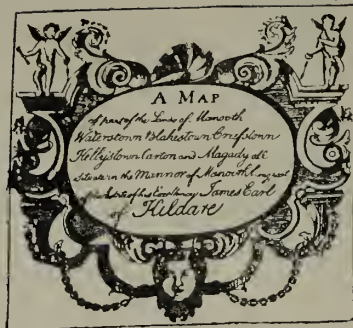 A MAP
of part of the Lands of Manooth
Waterstown Blakestown Crefstown
Kellystown Carton and Magady all
Situate in the Mannor of Manooth being part
of the Estate of his Excellency James Earl
of Kildare